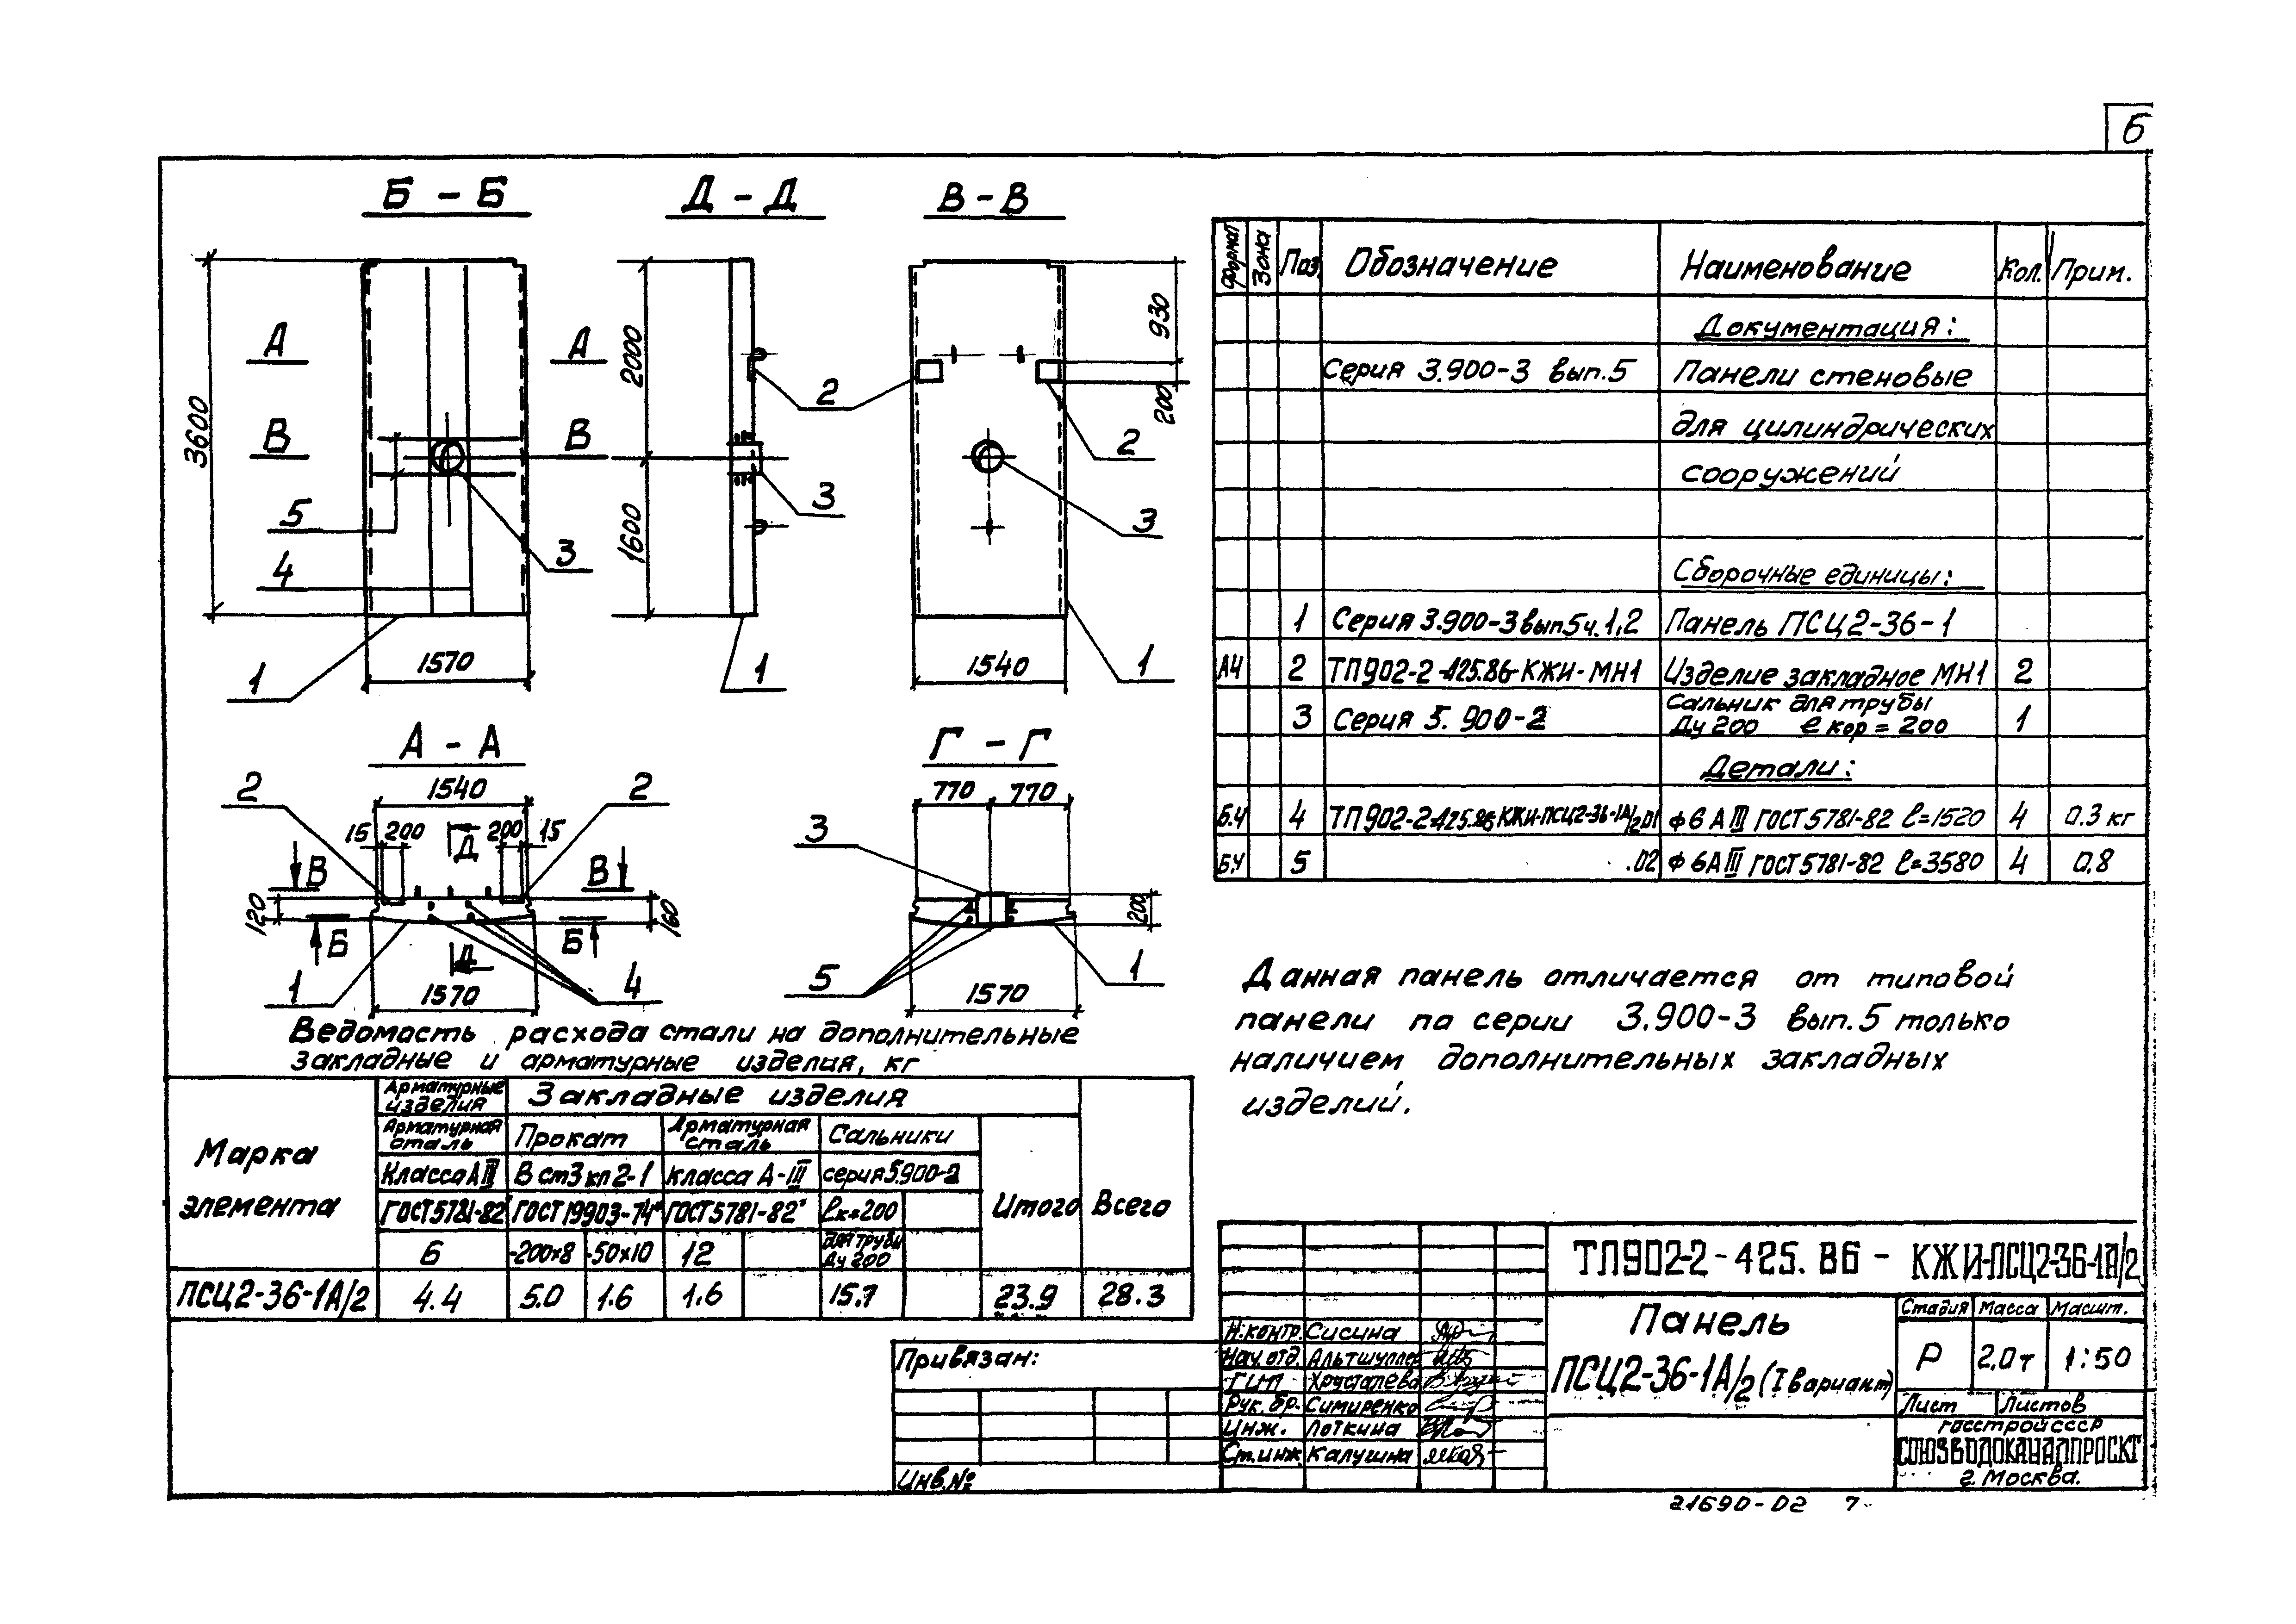 6
Б - Б
Д - Д
В - В
3600
А
А
В
В
5
4
3
1
1570
2000
1600
2
3
1
930
200
2
3
1
1540
А - А
1540
2
2
15 200
200 15
Д
В
В
120
160
Б
Б
Д
1
4
1570
Г - Г
770 770
3
200
5
1
1570
Формат Зона Поз. Обозначение Наименование Кол. Прим.
Документация:
Серия 3.900-3 вып.5 Панели стеновые
для цилиндрических
сооружений
Сборочные единицы:
1 Серия 3.900-3 вып 5 ч.1,2 Панель ПСЦ2-36-1
А4 2 ТП902-2-425.86-КЖИ-МН1 Изделие закладное МН1 2
3 Серия 5.900-2 Сальник для трубы
Ду 200 ℓ кор = 200 1
Детали:
Б.Ч 4 ТП902-2-425.86 КЖИ-ПСЦ2-36-1А/2 D1 ф 6 А III ГОСТ 5781-82 ℓ=1520 4 0.3 кг
Б.Ч 5 .D2 ф 6 А III ГОСТ 5781-82 ℓ=3580 4 0.8
Данная панель отличается от типовой
панели по серии 3.900-3 вып.5 только
наличием дополнительных закладных
изделий.
Ведомость расхода стали на дополнительные
закладные и арматурные изделия, кг
Марка
элемента
Арматурные
изделия
Закладные изделия
Арматурная
сталь
Прокат
Арматурная
сталь
Сальники
Класса А III В ст3 кп 2-1 класса А-III серия 5.900-2
ГОСТ 5781-82 ГОСТ 19903-74* ГОСТ 5781-82* ℓк=200
Итого Всего
6 -200x8 -50x10 12
для трубы
Ду 200
ПСЦ2-36-1А/2 4.4 5.0 1.6 1.6 15.7 23.9 28.3
Привязан:
Инв.№
ТП902-2-425.86 - КЖИ-ПСЦ2-36-1А/2
Панель
ПСЦ2-36-1А/2 (I вариант)
Стадия Масса Масшт.
Р 2.0т 1:50
Лист Листов
Госстрой СССР
СОЮЗВОДОКАНАЛПРОЕКТ
г. Москва.
Н.контр. Сисина
Нач.отд. Альтшуллер
ГИП Хрусталева
Рук.бр. Симиренко
Инж. Лоткина
Ст.инж Калугина
21690-02 7